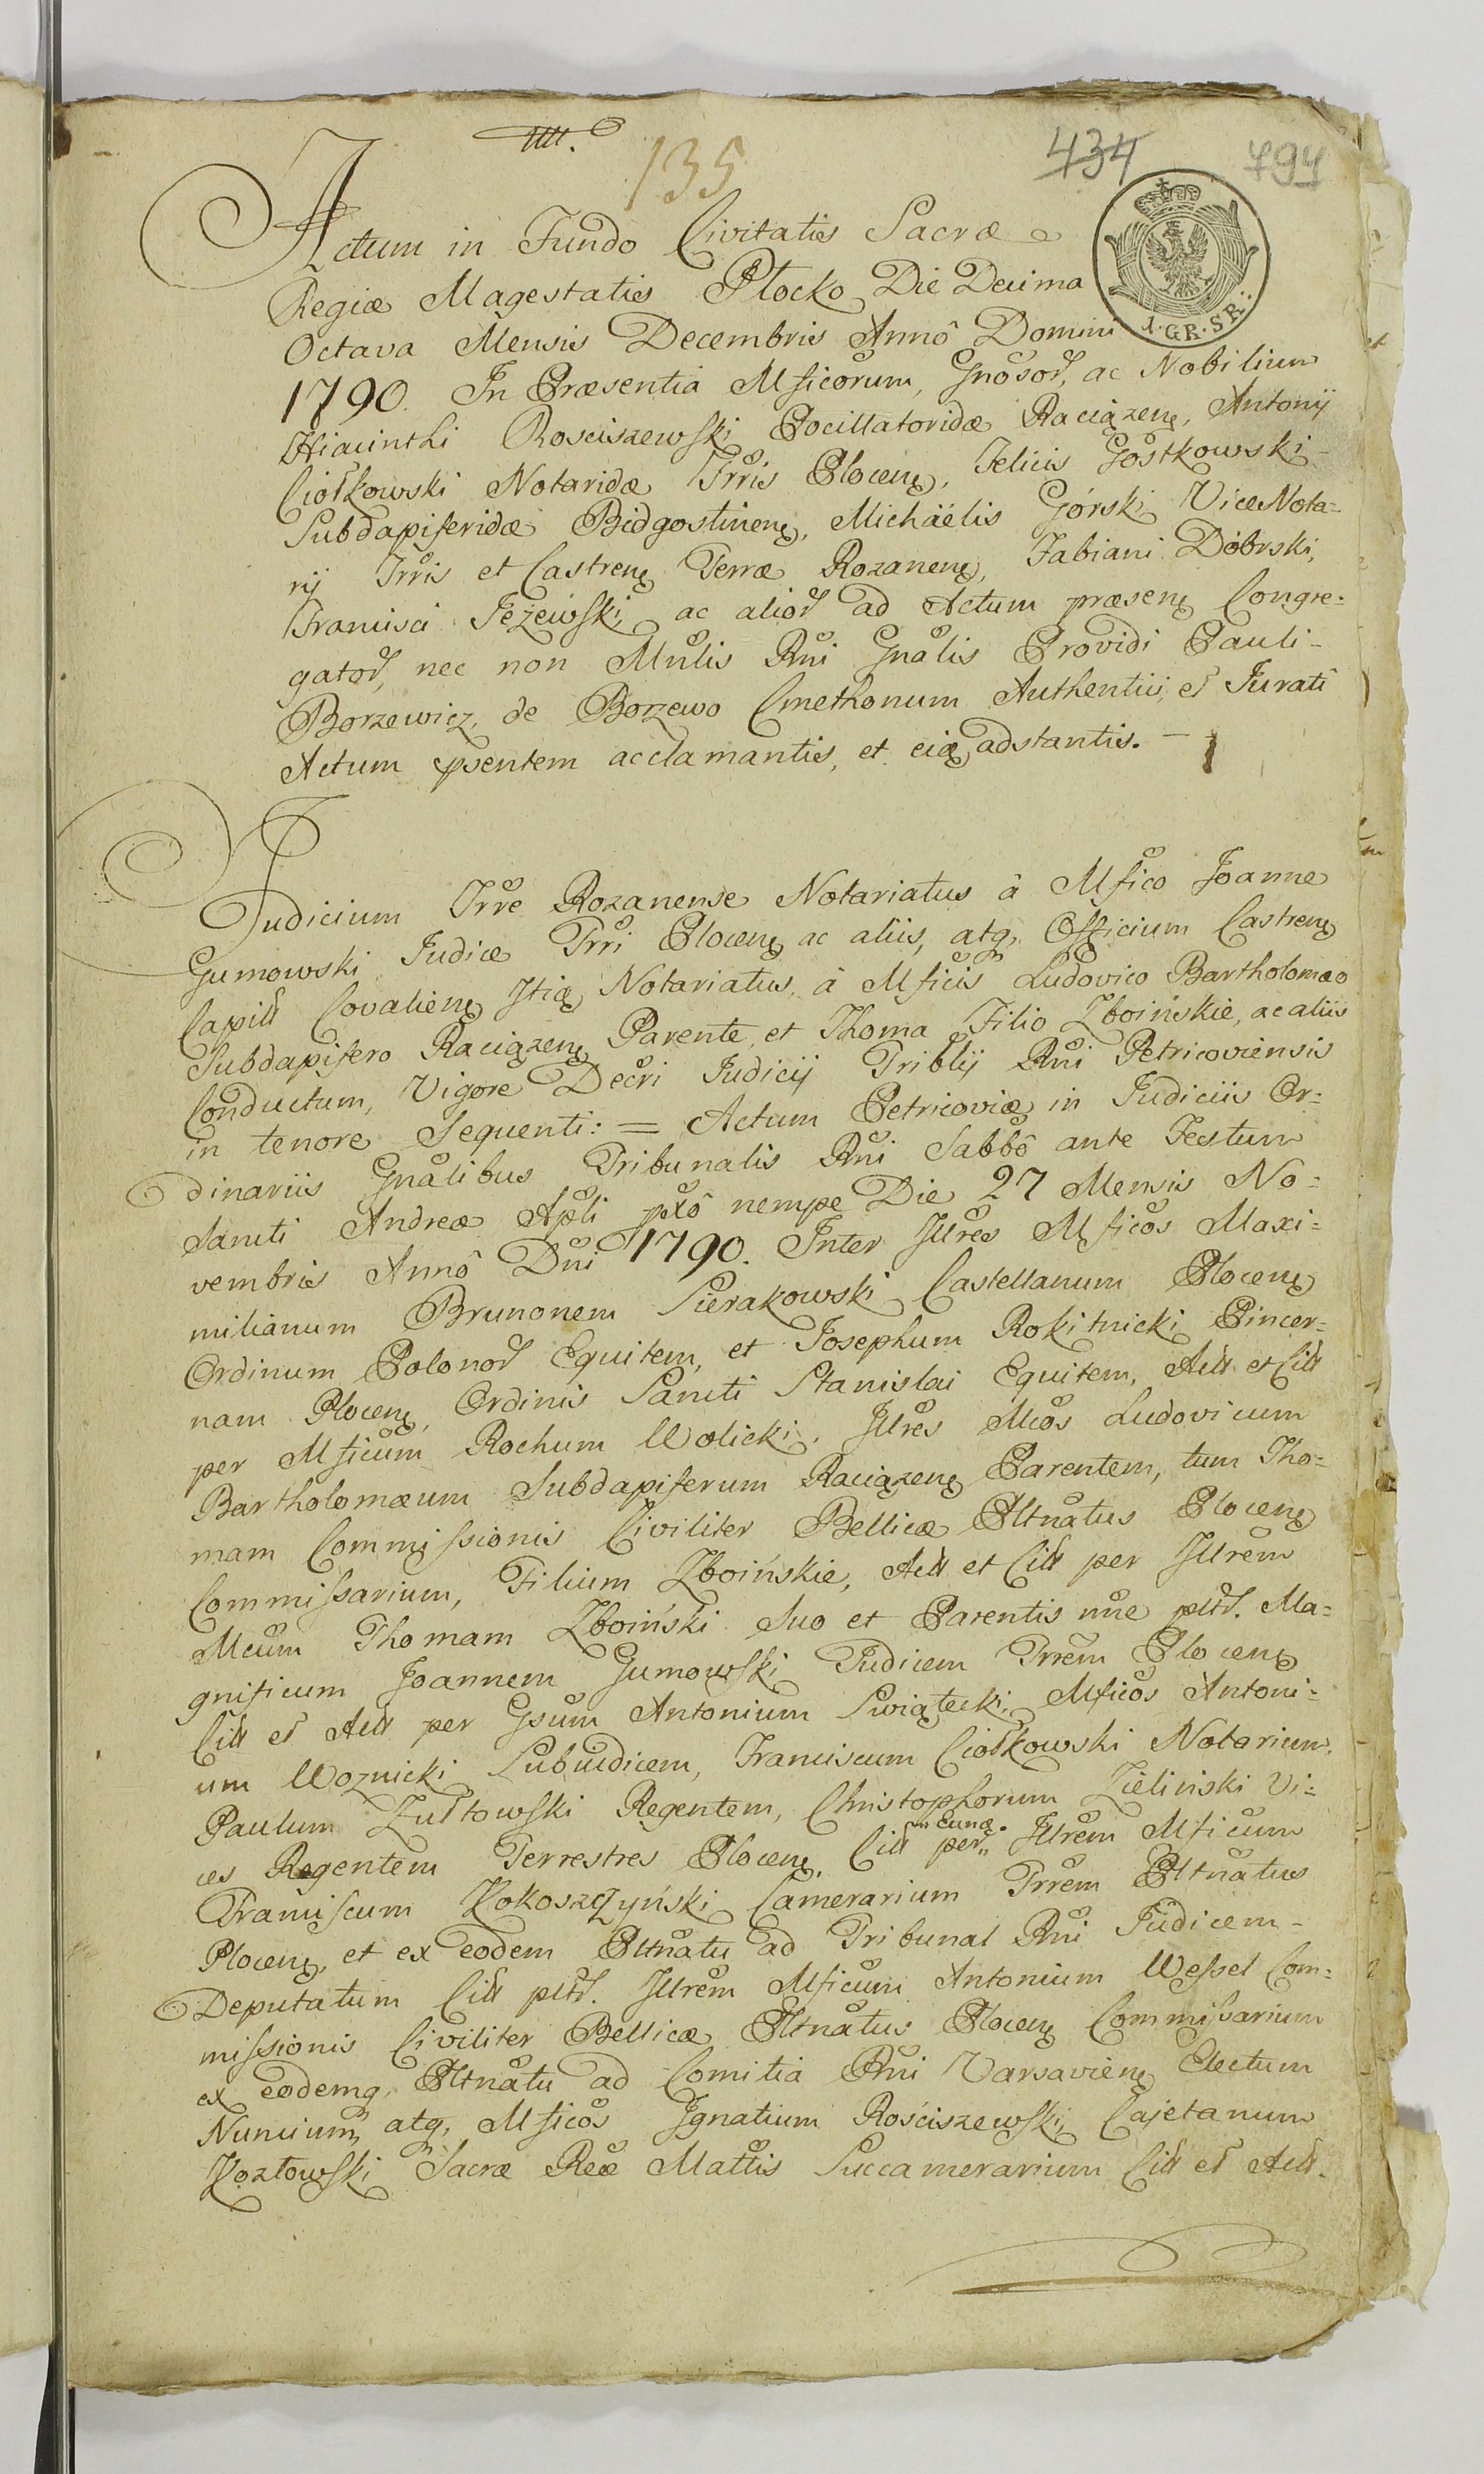 135
434
794
Actum in Fundo Civitatis Sacræ
1.GR.SR:
Regiæ Magestatis Płocko Die Decima
Octava Mensis Decembris Annô Domini
1790. In Præsentia Mficorum, Gnosor, ac Nobilium
Hiacinthi Rosciszewski Pocillatoridæ Raciązen, Antonij
Ciołkowski Notaridæ Trris Plocen, Felicis Gostkowski
Subdapiferidæ Bidgostinen, Michäelis Górski ViceNota=
rij Trris et Castren Terræ Rozanen, Fabiani Dobrski,
Francisci Jeżewski, ac alior ad Actum præsen Congre=
gator, nec non Mnlis Rni Gnalis Providi Pauli
Borzewicz de Borzewo Cmethonum Authentici et Jurati
Actum psentem acclamantis, et eiq adstantis.
Judicium Trre Rozanense Notariatus â Mfico Joanne
Gumowski Judice Trri Plocen ac aliis, atq, Officium Castren
Capitl Covalien Itiq Notariatus, â Mficis Ludovico Bartholomæo
Subdapifero Raciązen Parente, et Thoma Filio Zboińskie, ac aliis
Conductum, Vigore Decri Judicij Triblij Rni Petricoviensis
in tenore Sequenti: = Actum Petricoviæ in Judiciis Or=
dinariis Gnalibus Tribunalis Rni Sabbô ante Festum
Sancti Andreæ Apli pxô nempe Die 27 Mensis No=
vembris Annô Dni 1790. Inter Illres Mficos Maxi=
milianum Brunonem Sierakowski Castellanum Plocen
Ordinum Polonor Equitem, et Josephum Rokitnicki Pincer=
nam Plocen, Ordinis Sancti Stanislai Equitem, Actl et Citl
per Mficum Rochum Wolicki. Illres Mcos Ludovicum
Bartholomæum Subdapiferum Raciązen Parentem, tum Tho=
mam Commissionis Civiliter Bellicæ Pltnatus Plocen
Commissarium, Filium Zboińskie, Actl et Citl per Illrem
Mcum Thomam Zboiński Suo et Parentis nne pltr. Ma=
gnificum Joannem Gumowski Judicem Trrem Plocen
Citl et Actl per Gsum Antonium Swiątecki, Mficos Antoni=
um Woznicki Subiudicem, Franciscum Ciołkowski Notarium,
Paulum Zułtowski Regentem, Christophorum Zieliński Vi=
ces Regentem Terrestres Plocen, Citl per „Eunq. Illrem Mficum
Franciscum Kokoszczyński Camerarium Trrem Pltnatus
Plocen, et ex eodem Pltnatu ad Tribunal Rni Judicem
Deputatum Citl pltr. Illrem Mficum Antonium Wessel Com=
missionis Civiliter Bellicæ Pltnatus Plocen Commissarium
ex eodemq, Pltnatu ad Comitia Rni Varsavien Electum
Nuncium, atq, Mficos Ignatium Rościszewski, Cajetanum
Kozłowski Sacræ Reæ Mattis Succamerarium Citl et Actl.